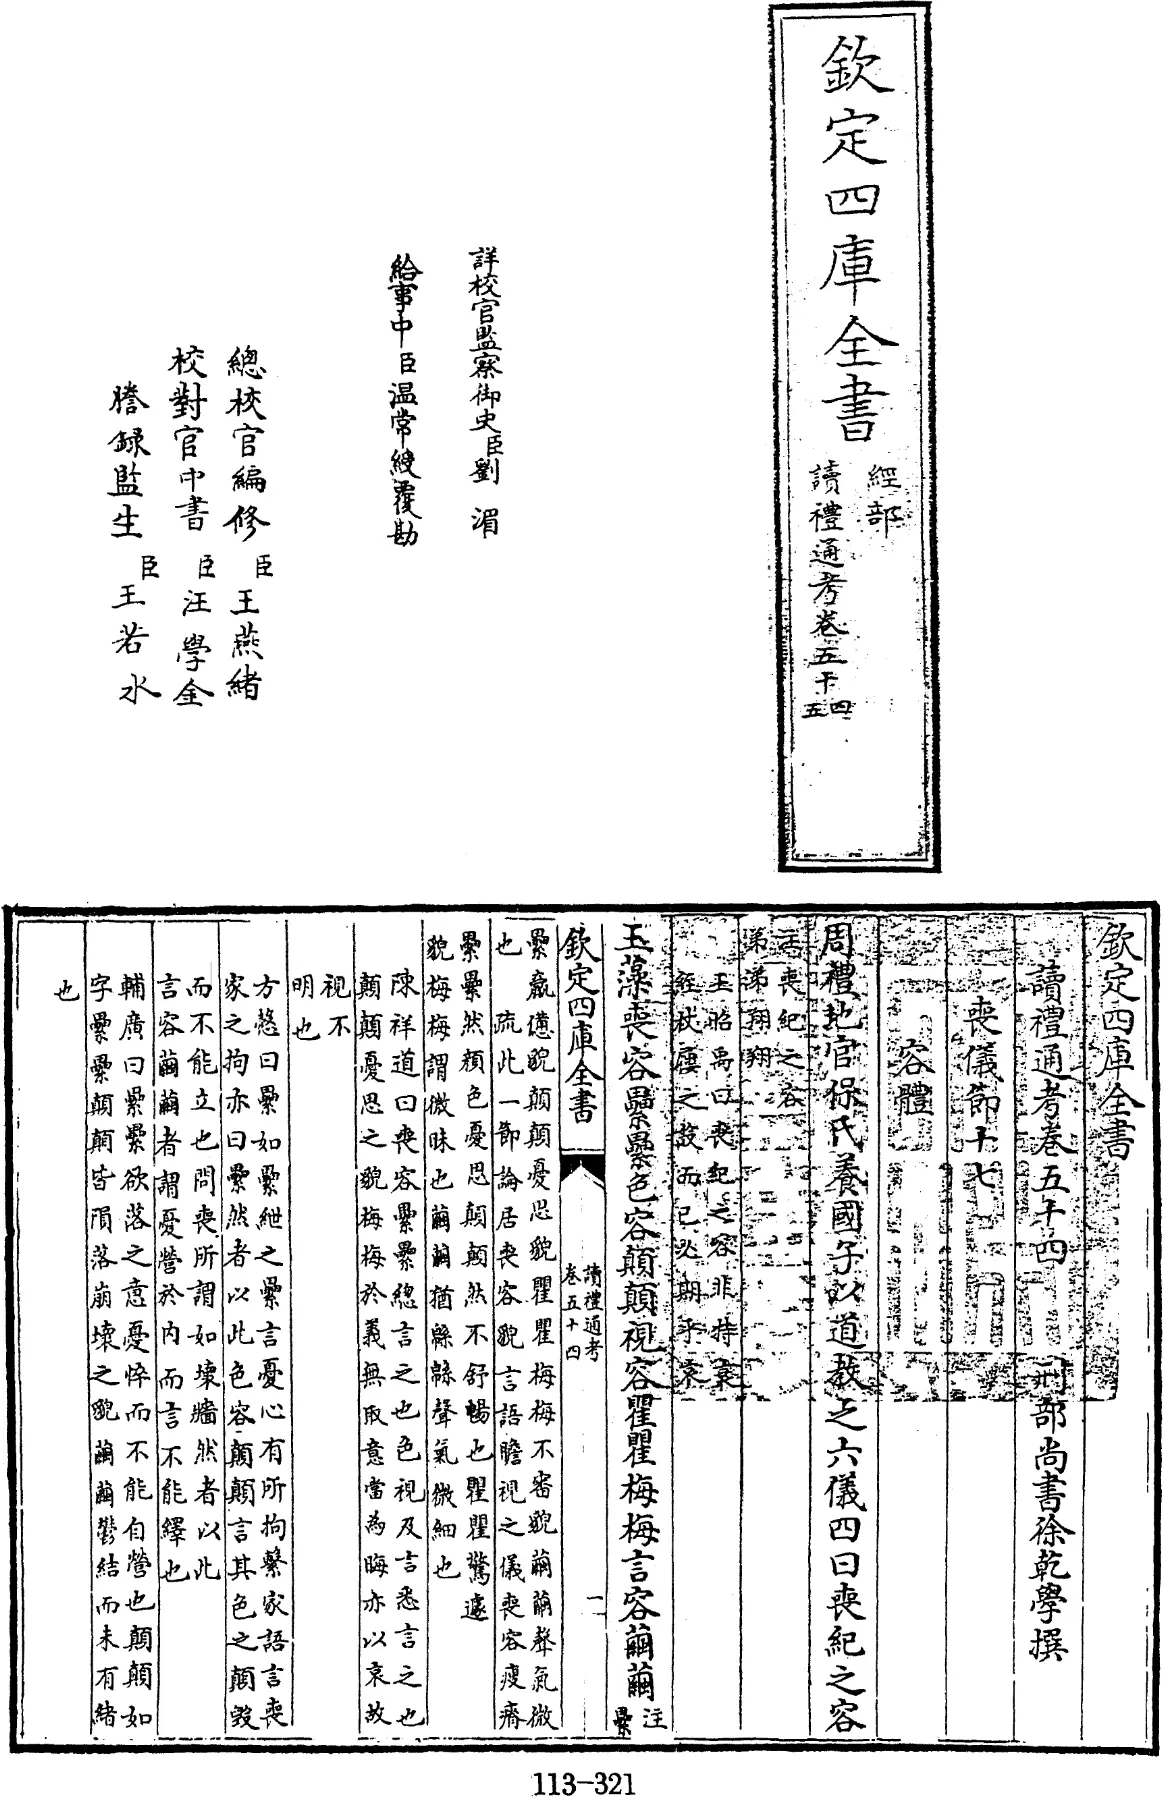 欽定四庫全書
經部
讀禮通考卷五十四
五
詳校官監察御史臣劉湄
給事中臣温常綬覆勘
總校官編修臣王燕緒
校對官中書臣汪學金
謄録監生臣王若水
欽定四庫全書
讀禮通考卷五十四 刑部尚書徐乾學撰
喪儀節十七
容體
周禮地官保氏養國子以道教之六儀四曰喪紀之容
注喪紀之容
涕涕翔翔
王昭禹曰喪紀之容非特衰
絰杖屨之設而已必期乎哀
玉藻喪容纍纍色容顛顛視容瞿瞿梅梅言容繭繭注
纍
欽定四庫全書
讀禮通考
卷五十四
一
纍羸憊貌顛顛憂思貌瞿瞿梅梅不審貌繭繭聲氣微
也 疏此一節論居喪容貌言語瞻視之儀喪容瘦瘠
纍纍然顔色憂思顛顛然不舒暢也瞿瞿驚遽
貌梅梅謂微昧也繭繭猶緜緜聲氣微細也
陳祥道曰喪容纍纍總言之也色視及言悉言之也
顛顛憂思之貌梅梅於義無取意當為晦亦以哀故
視不
明也
方慤曰纍如纍紲之纍言憂心有所拘繫家語言喪
家之拘亦曰纍然者以此色容顛顛言其色之顛毀
而不能立也問喪所謂如壞牆然者以此
言容繭繭者謂憂營於内而言不能繹也
輔廣曰纍纍欲落之意憂悴而不能自營也顛顛如
字纍纍顛顛皆隕落崩壞之貌繭繭鬱結而未有緒
也
113-321